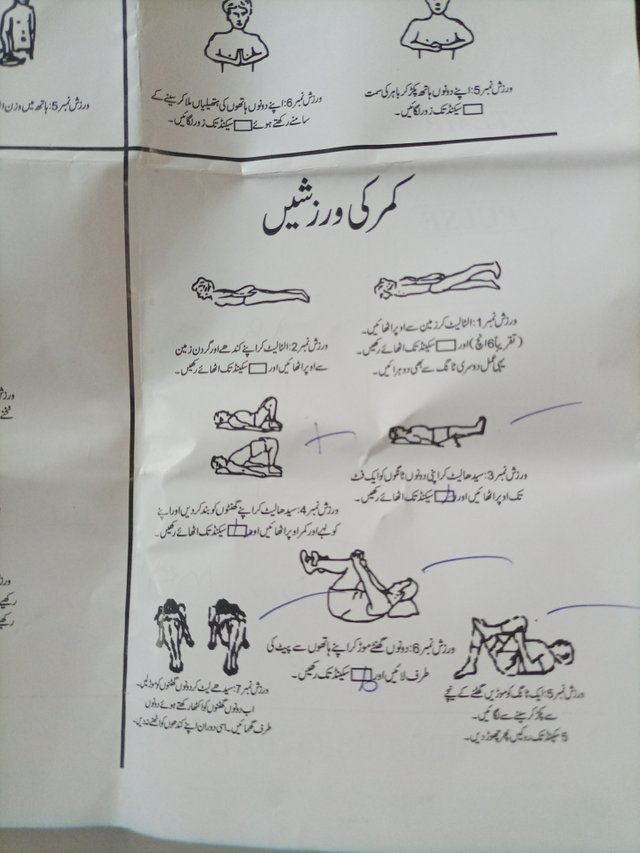 ورزش نمبر 5: اپنے دونوں ہاتھ پکڑ کر باہر کی سمت
سیکنڈ تک زور لگائیں۔
ورزش نمبر 6: اپنے دونوں ہاتھوں کی ہتھیلیاں ملا کر سینے کے
سامنے رکھتے ہوئے سیکنڈ تک زور لگائیں۔
ورزش نمبر 5: ہاتھ میں وزن
کمر کی ورزشیں
ورزش نمبر 1: الٹا لیٹ کر زمین سے اوپر اٹھائیں۔
(تقریباً 6 انچ) اور سیکنڈ تک اٹھائے رکھیں۔
یہی عمل دوسری ٹانگ سے بھی دوہرائیں۔
ورزش نمبر 2: الٹا لیٹ کر اپنے کندھے اور گردن زمین
سے اوپر اٹھائیں اور سیکنڈ تک اٹھائے رکھیں۔
ورزش نمبر 3: سیدھا لیٹ کر اپنی دونوں ٹانگوں کو ایک فٹ
تک اوپر اٹھائیں اور سیکنڈ تک اٹھائے رکھیں۔
ورزش نمبر 4: سیدھا لیٹ کر اپنے گھٹنوں کو بند کر دیں اور اپنے
کولہے اور کمر اوپر اٹھائیں اور سیکنڈ تک اٹھائے رکھیں۔
ورزش نمبر 5: ایک ٹانگ کو موڑیں گھٹنے کے نیچے
سے پکڑ کر سینے سے لگائیں۔
5 سیکنڈ تک روکیں پھر چھوڑ دیں۔
ورزش نمبر 6: دونوں گھٹنے موڑ کر اپنے ہاتھوں سے پیٹ کی
طرف لائیں اور سیکنڈ تک رکھیں۔
ورزش نمبر 7: سیدھے لیٹ کر دونوں گھٹنوں کو موڑ لیں۔
اب دونوں گھٹنوں کو اکٹھا رکھتے ہوئے دونوں
طرف گھمائیں۔ اسی دوران اپنے کندھوں کو اٹھنے نہ دیں۔